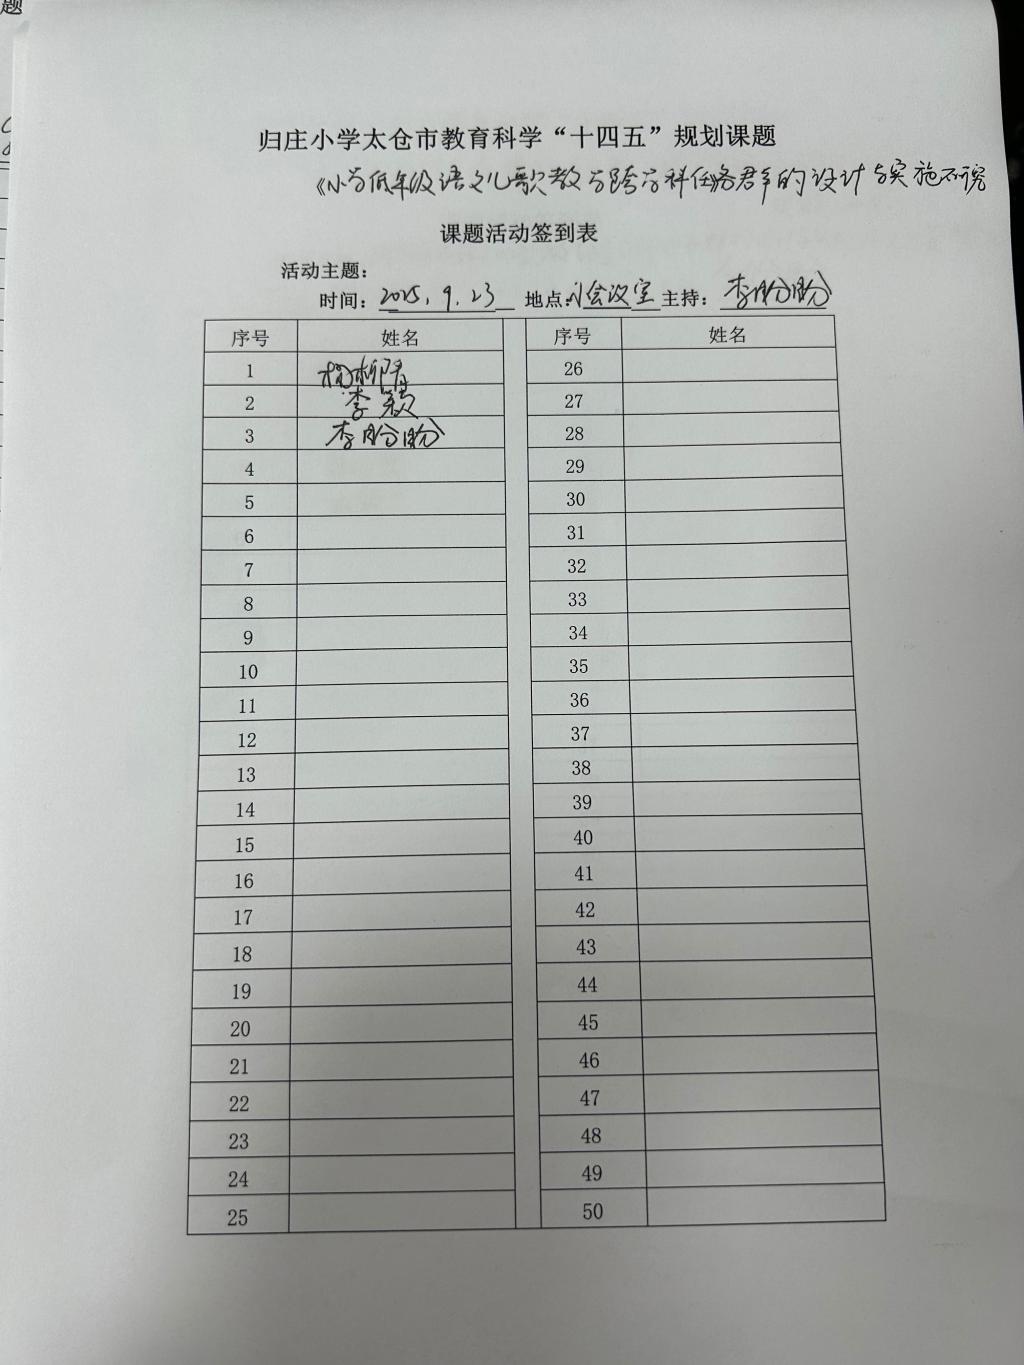 题
归庄小学太仓市教育科学“十四五”规划课题
《小学低年级语文儿歌教学跨学科任务群的设计与实施研究
课题活动签到表
活动主题：
时间：2025.9.23 地点：小会议室 主持：李盼盼
序号 姓名 序号 姓名
1 26
2 李颖 27
3 李盼盼 28
4 29
5 30
6 31
7 32
8 33
9 34
10 35
11 36
12 37
13 38
14 39
15 40
16 41
17 42
18 43
19 44
20 45
21 46
22 47
23 48
24 49
25 50